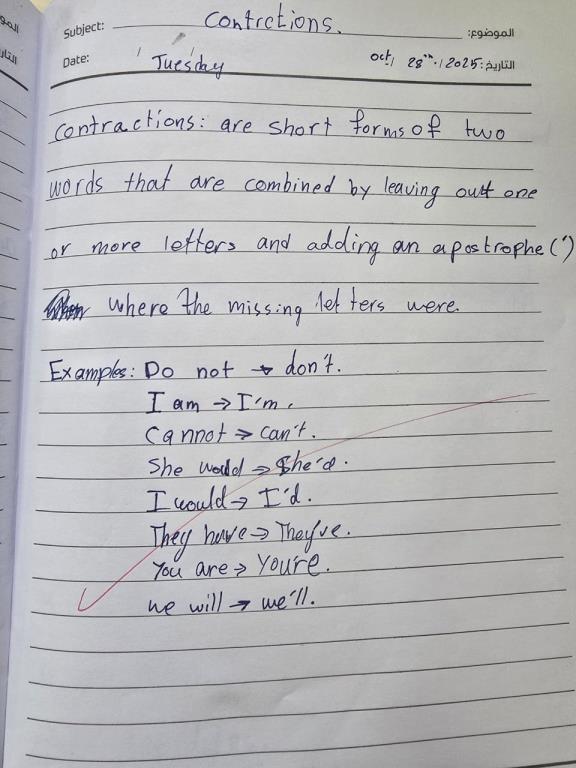 Subject: Contrctions. الموضوع:
Date: / / Tuesday oct/ 28th / 2025 التاريخ:
Contractions: are short forms of two
words that are combined by leaving out one
or more letters and adding an apostrophe (')
where the missing letters were.
Examples: Do not → don't.
I am → I'm.
Cannot → can't.
She would → She'd.
I would → I'd.
They have → They've.
You are → You're.
we will → we'll.